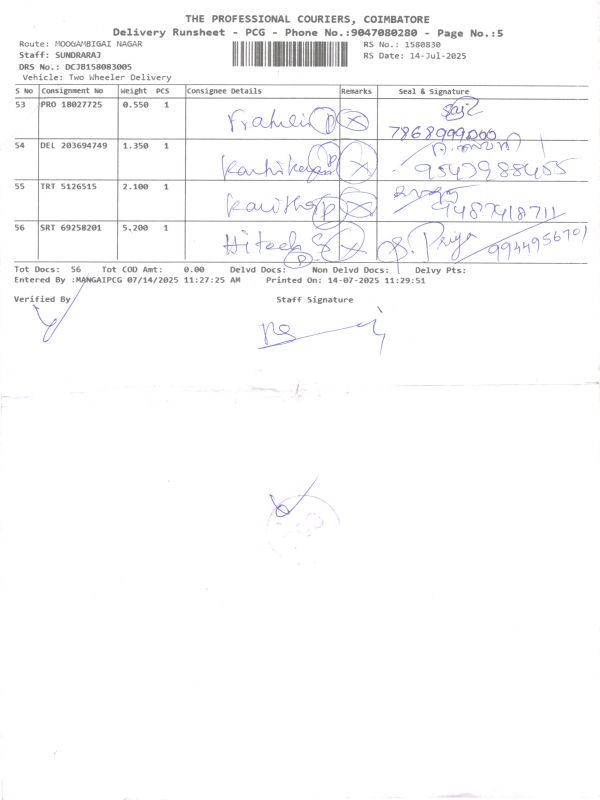 THE PROFESSIONAL COURIERS, COIMBATORE
Delivery Runsheet - PCG - Phone No.:9047080280 - Page No.:5
Route: MOOGAMBIGAI NAGAR RS No.: 1580830
Staff: SUNDRARAJ RS Date: 14-Jul-2025
DRS No.: DCJB158083005
Vehicle: Two Wheeler Delivery
S No Consignment No Weight PCS Consignee Details Remarks Seal & Signature
53 PRO 18027725 0.550 1
7868999000
54 DEL 203694749 1.350 1
55 TRT 5126515 2.100 1
9487418711
56 SRT 69258201 5.200 1 Hitesh S P X S. Priya 9944956701
Tot Docs: 56 Tot COD Amt: 0.00 Delvd Docs: Non Delvd Docs: Delvy Pts:
Entered By :MANGAIPCG 07/14/2025 11:27:25 AM Printed On: 14-07-2025 11:29:51
Verified By Staff Signature